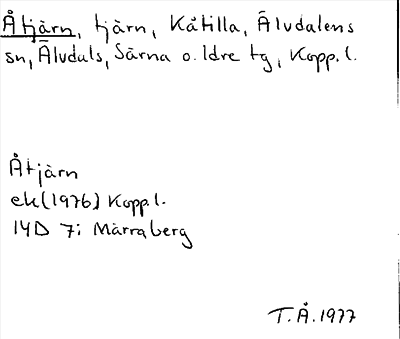 Åtjärn, tjärn, Kåtilla, Älvdalens
sn, Älvdals, Särna o. Idre tg, Kopp. l.
Åtjärn
ek (1976) Kopp l.
14D 7i Märraberg
T.Å. 1977